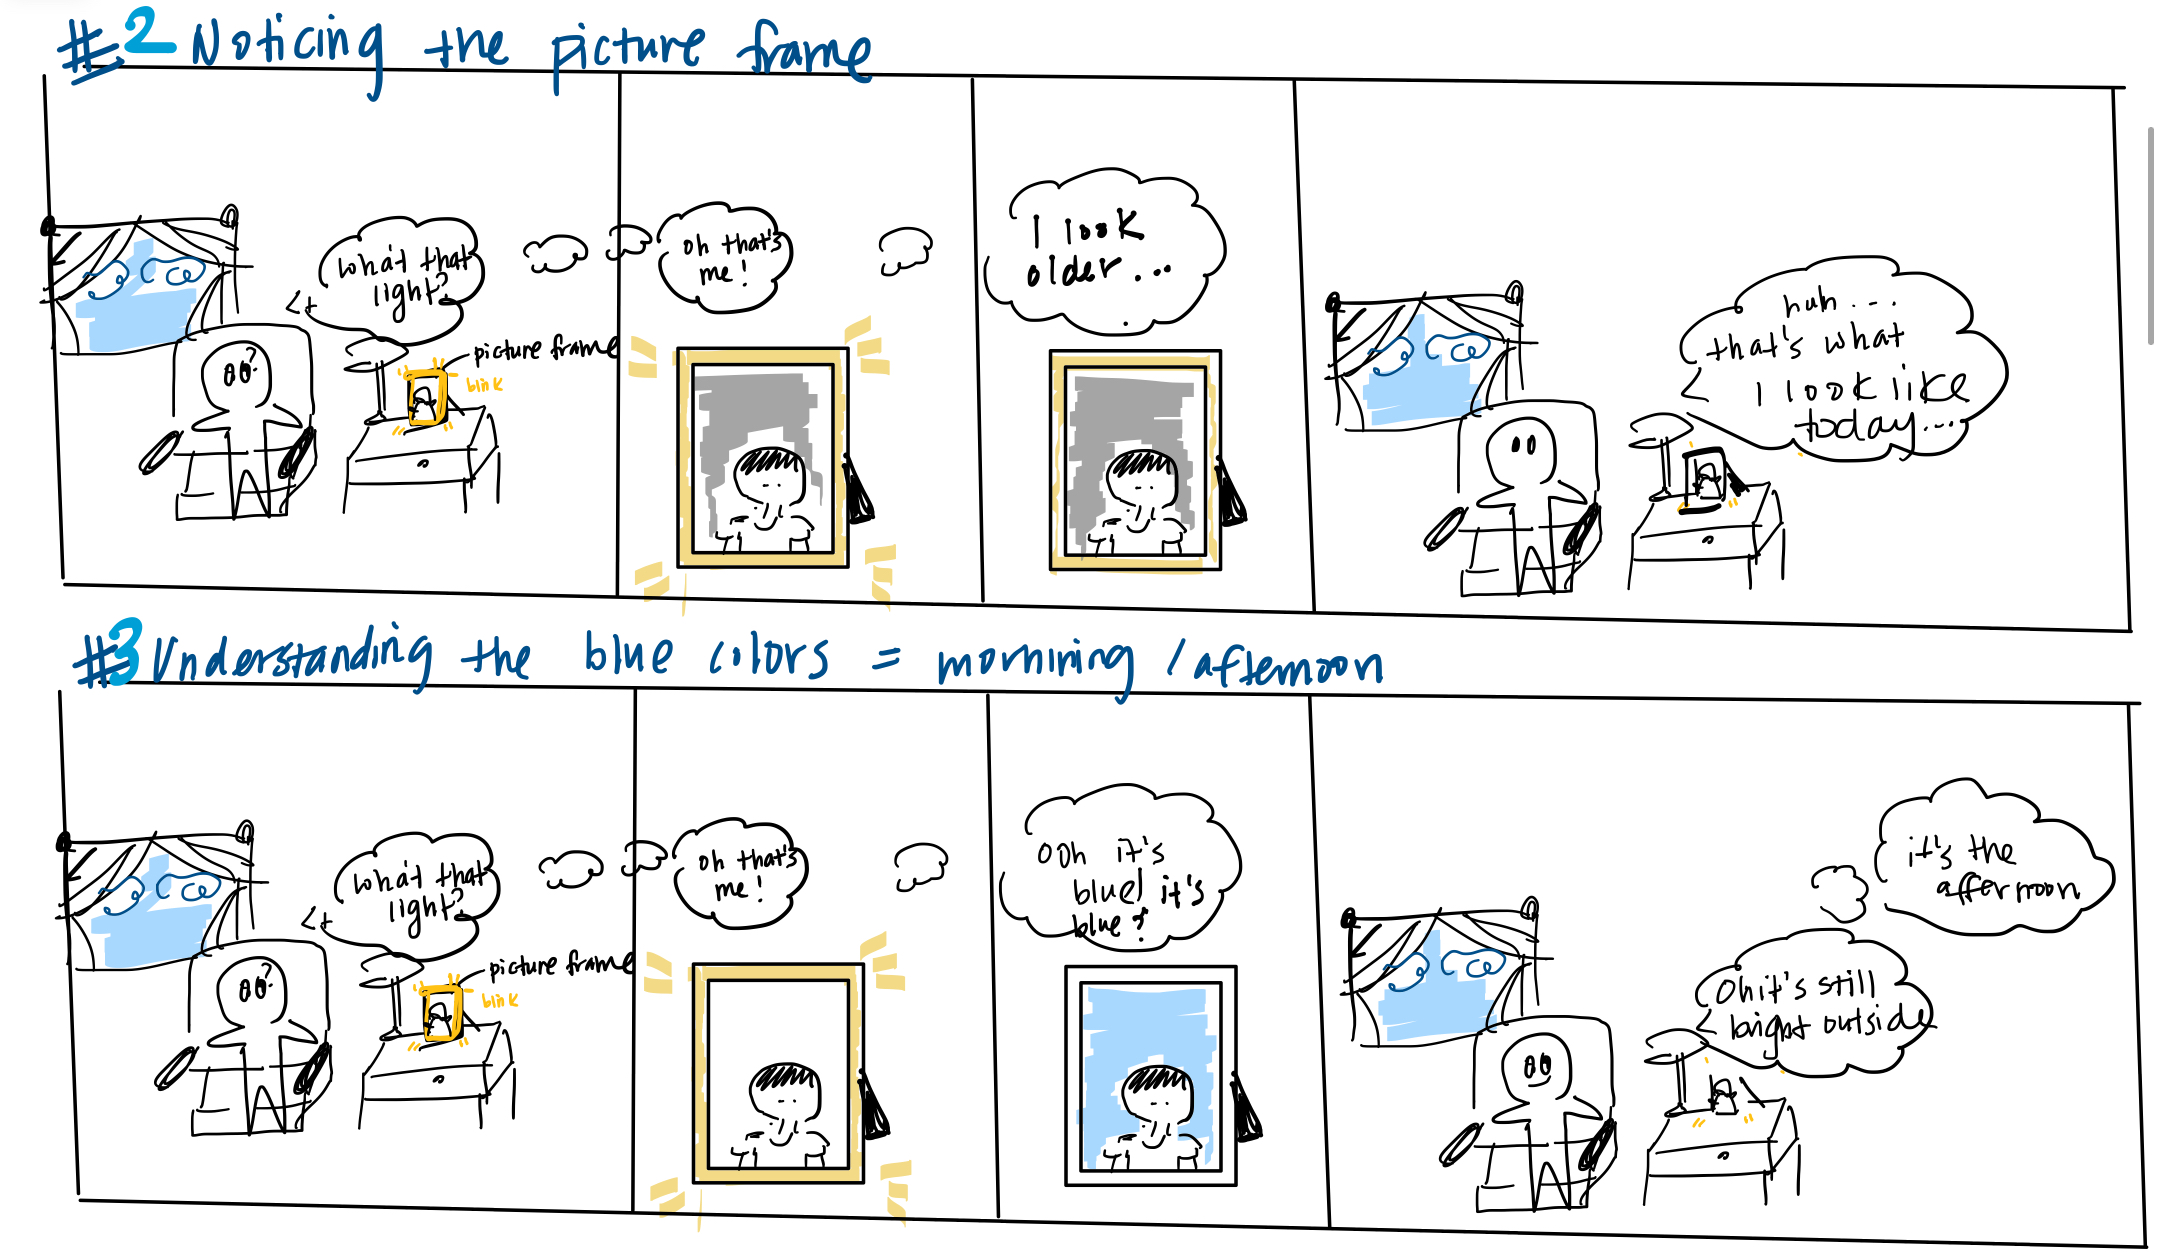 #2 Noticing the picture frame
what that
light?
picture frame
blink
oh that's
me!
I look
older...
huh...
that's what
I look like
today...
#3 Understanding the blue colors = mornining / afternoon
what that
light?
picture frame
blink
oh that's
me!
ooh it's
blue! it's
blue?
it's the
afternoon
Oh it's still
bright outside